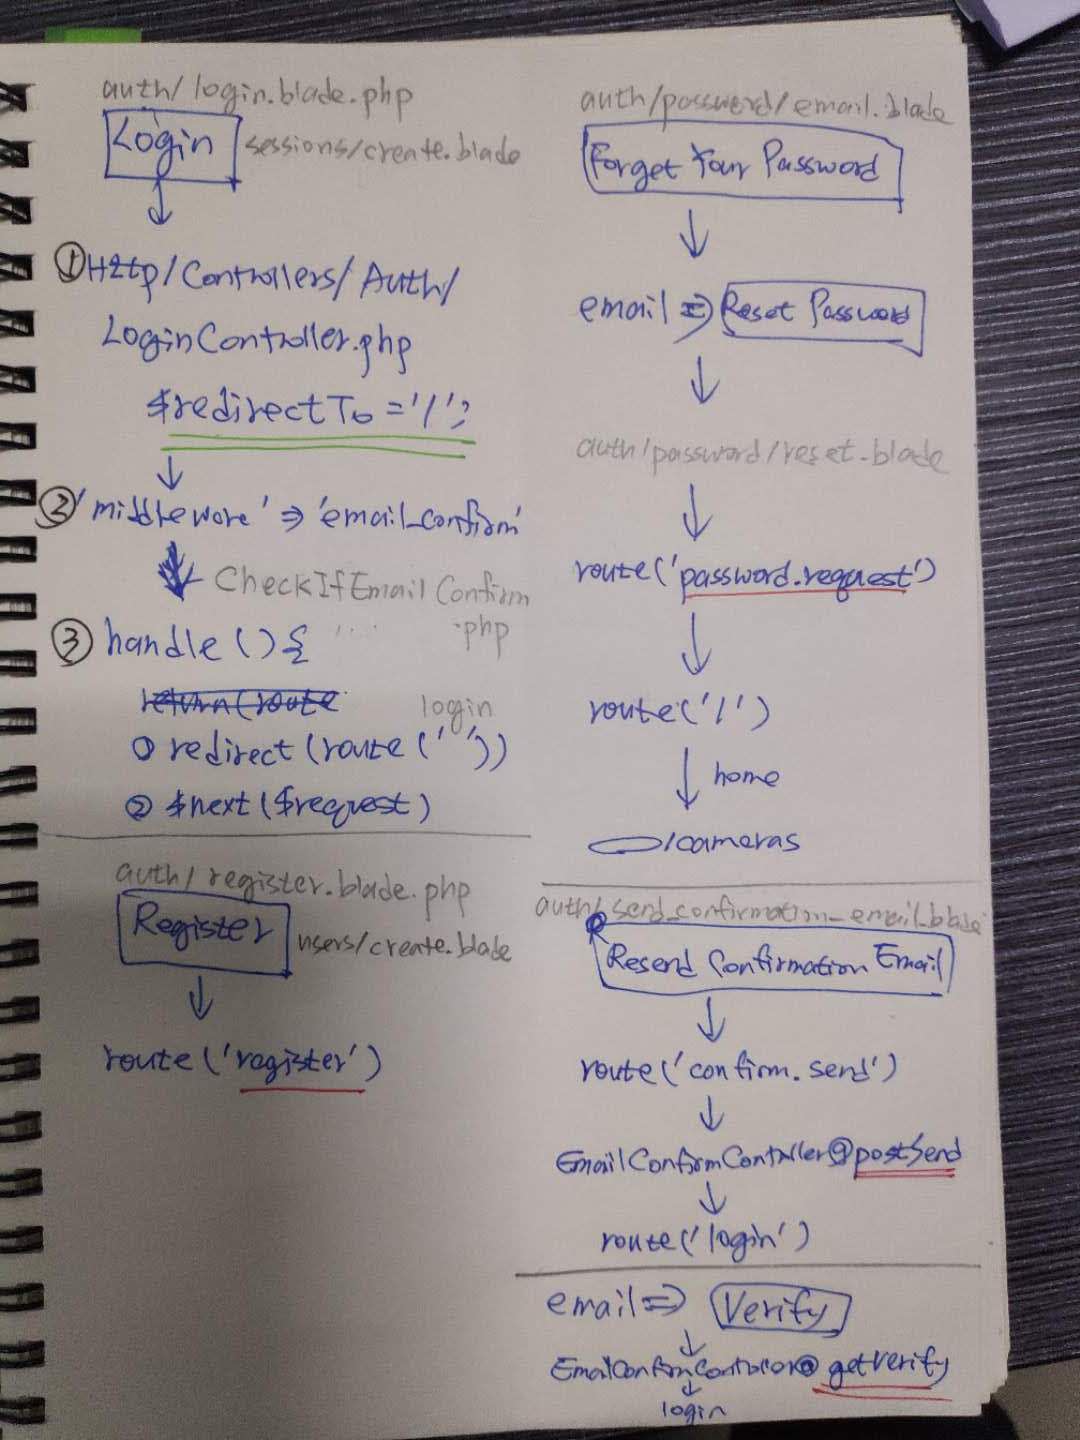 auth/login.blade.php
Login
sessions/create.blade
↓
①Http/Controllers/Auth/
LoginController.php
$redirectTo='/';
↓
②'middleware' => 'email_confirm'
↓ CheckIfEmailConfirm
.php
③ handle(){ ....
return(route
login
① redirect(route(' '))
② $next($request)
auth/register.blade.php
Register
users/create.blade
↓
route('register')
auth/password/email.blade
Forget Your Password
↓
email => Reset Password
↓
auth/password/reset.blade
↓
route('password.request')
↓
route('/')
↓ home
/cameras
auth/send_confirmation_email.blade
Resend Confirmation Email
↓
route('confirm.send')
↓
EmailConfirmController@postSend
↓
route('login')
email => Verify
↓
EmailConfirmController@getVerify
↓
login